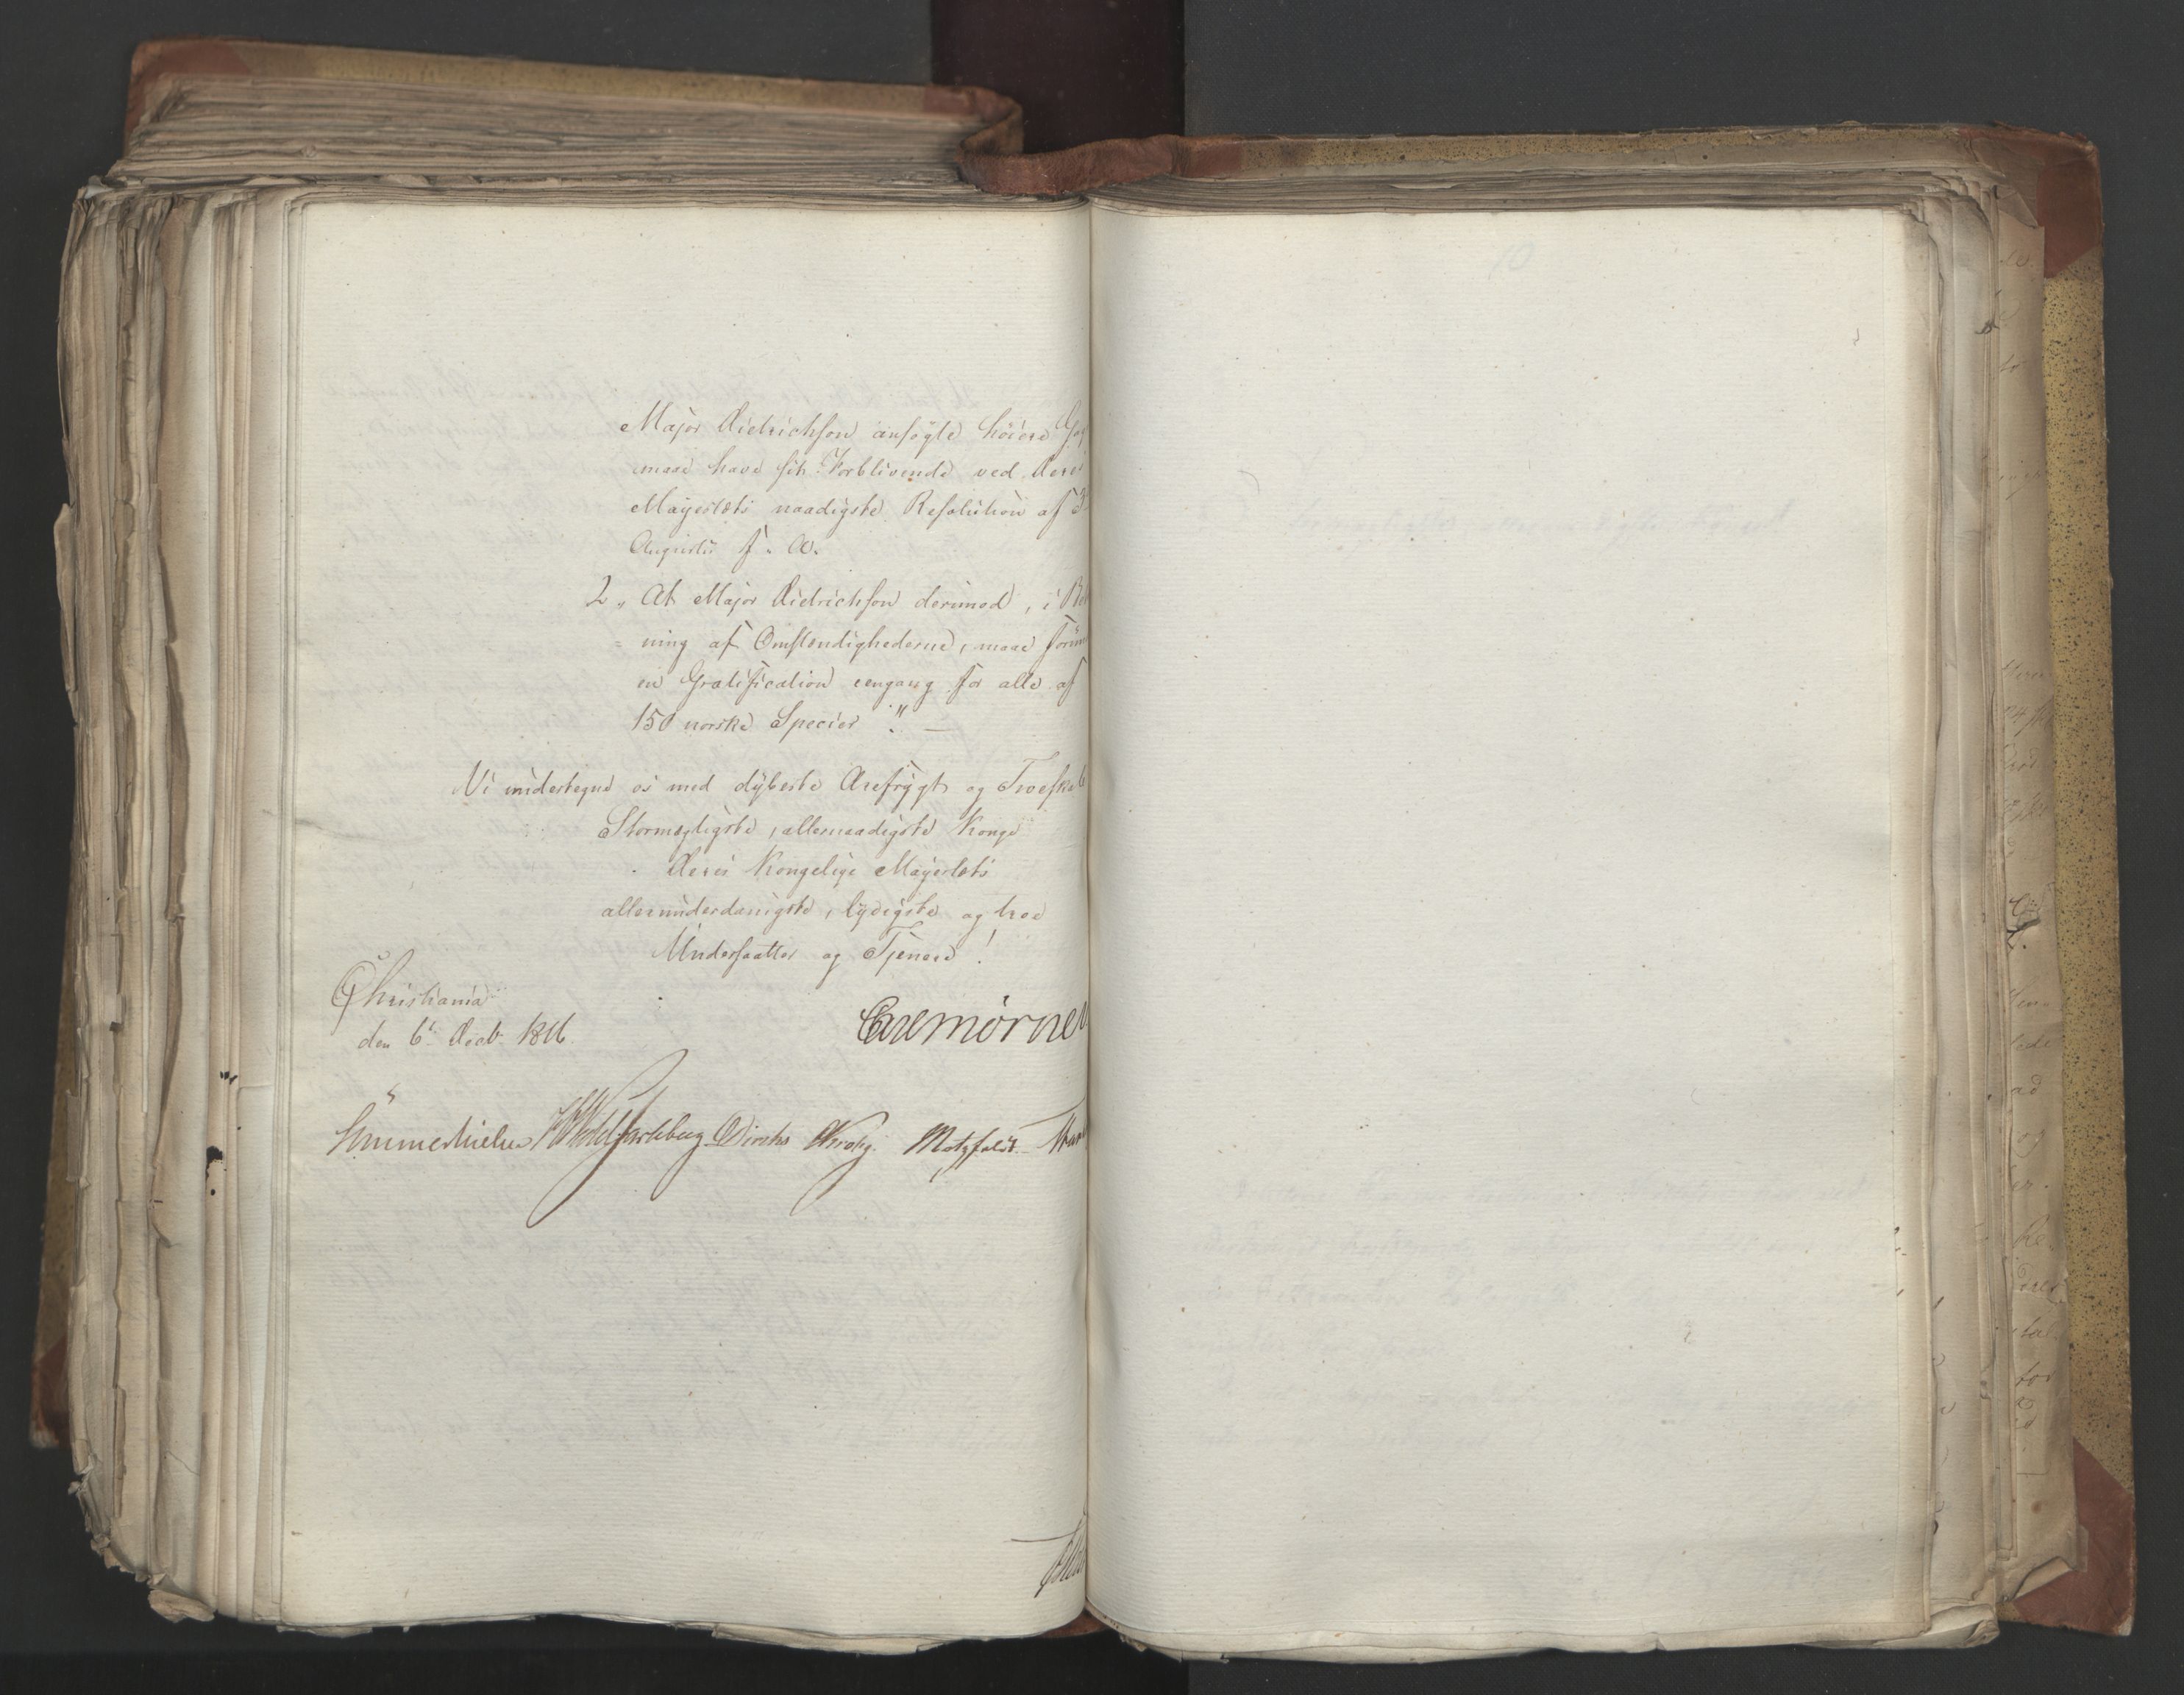 Major Didrichson ansøgte höiere
maae have sit Forblivende ved Deres
Mayestæts naadigste Resolution af
Augusti f. A.
2, At Major Didrichson derimod, i
ning af Omstændighederne, maae
en Gratification eengang for alle af
150 norske Species "
Vi undertegne os med dybeste Ærefrygt og Troeskab
Stormægtigste, allernaadigste Konge
Deres Kongelige Mayestæts
allerunderdanigste, lydigste og troe
Undersaatter og Tjenere!
Christiania
den 6t Decb. 1816.
Carl Mörner
Sommerhielm Diriks Krohg. Motzfeldt